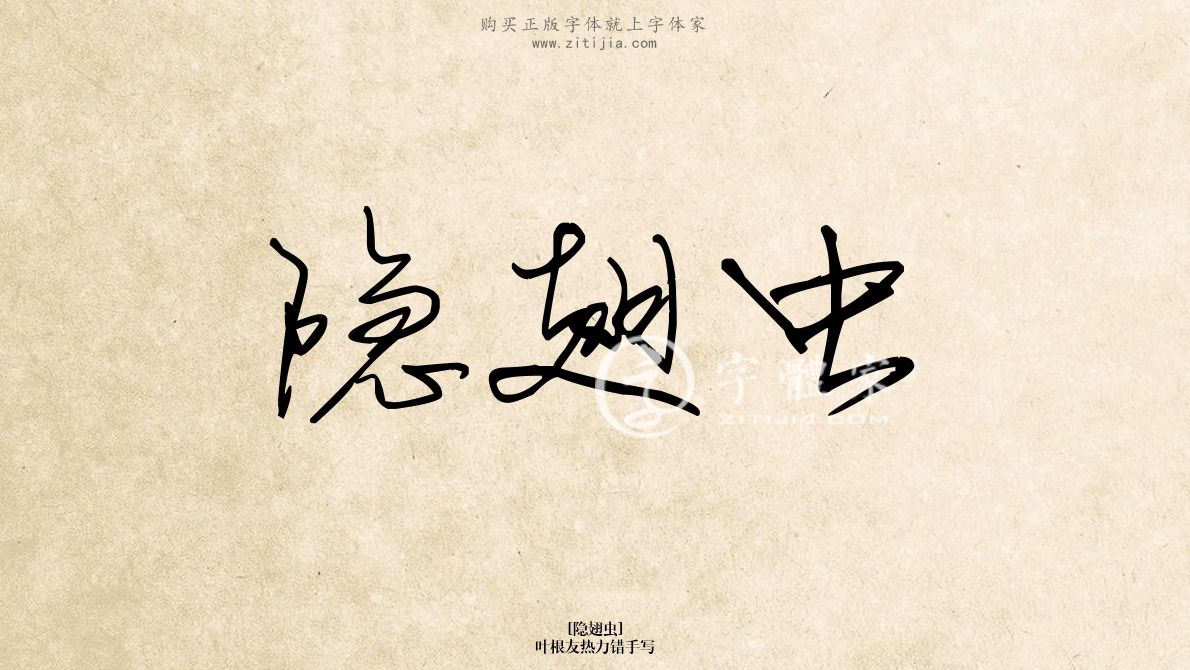 购买正版字体就上字体家
www.zitijia.com
隐翅虫
字體家
ZITIJIA.COM
[隐翅虫]
叶根友热力错手写